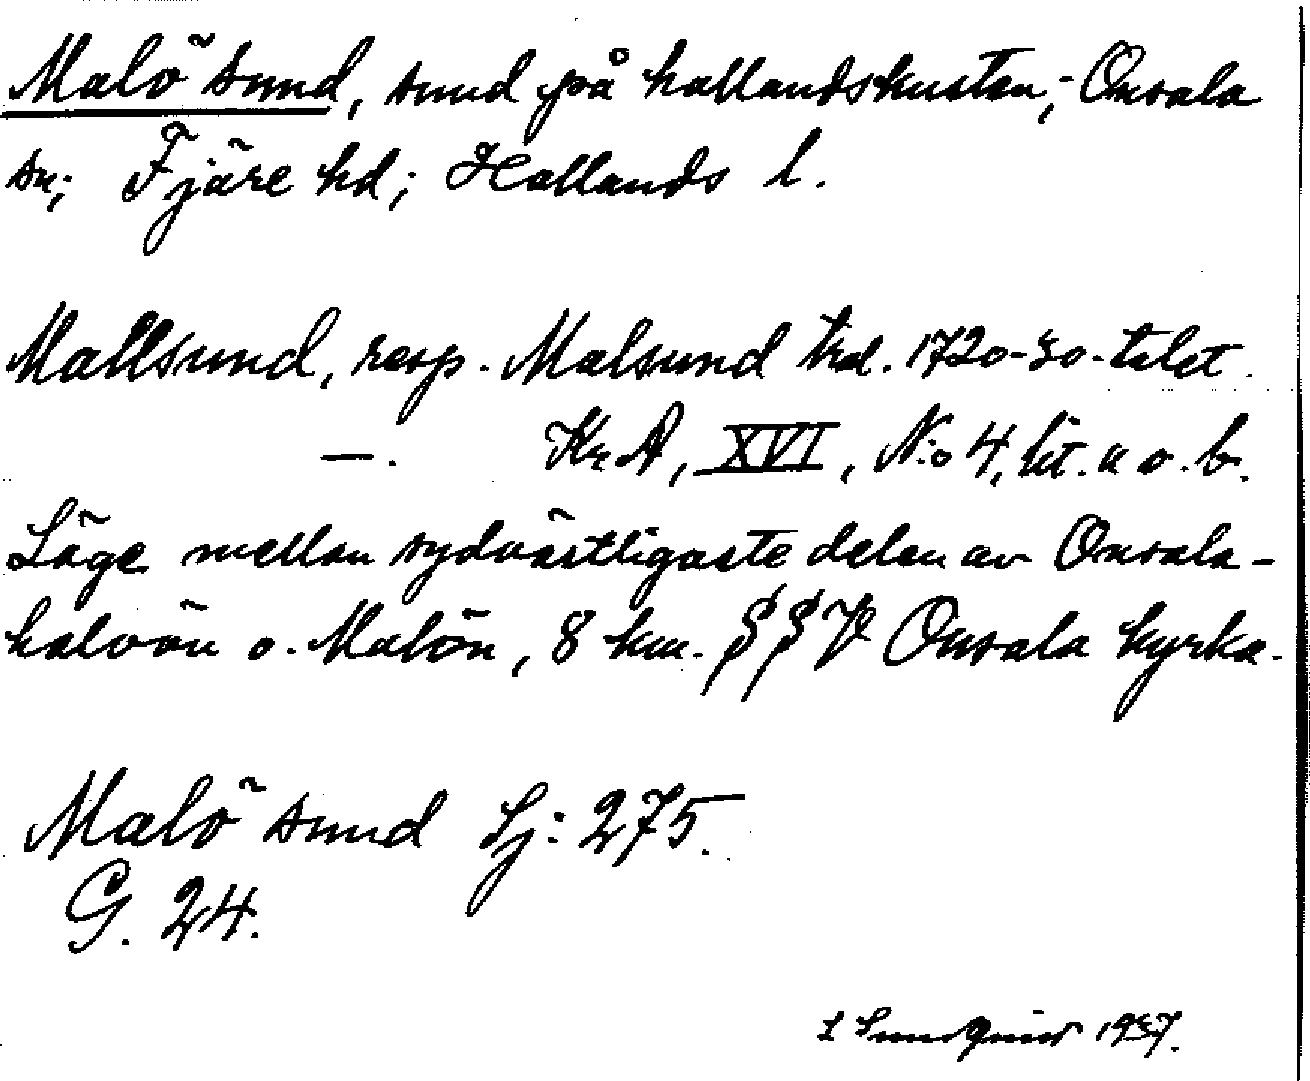 Malö sund, sund på hallandskusten; Onsala
sn; Fjäre hd; Hallands l.
Mallsund, resp. Malsund krd. 1720-30-talet.
—. KrA, XVI, N:o 4, lit. a o. b.
Läge mellan sydvästligaste delen av Onsala-
halvön o. Malön, 8 km. SSV Onsala kyrka.
Malö sund Sj: 275.
G. 24.
Sundquist 1937.